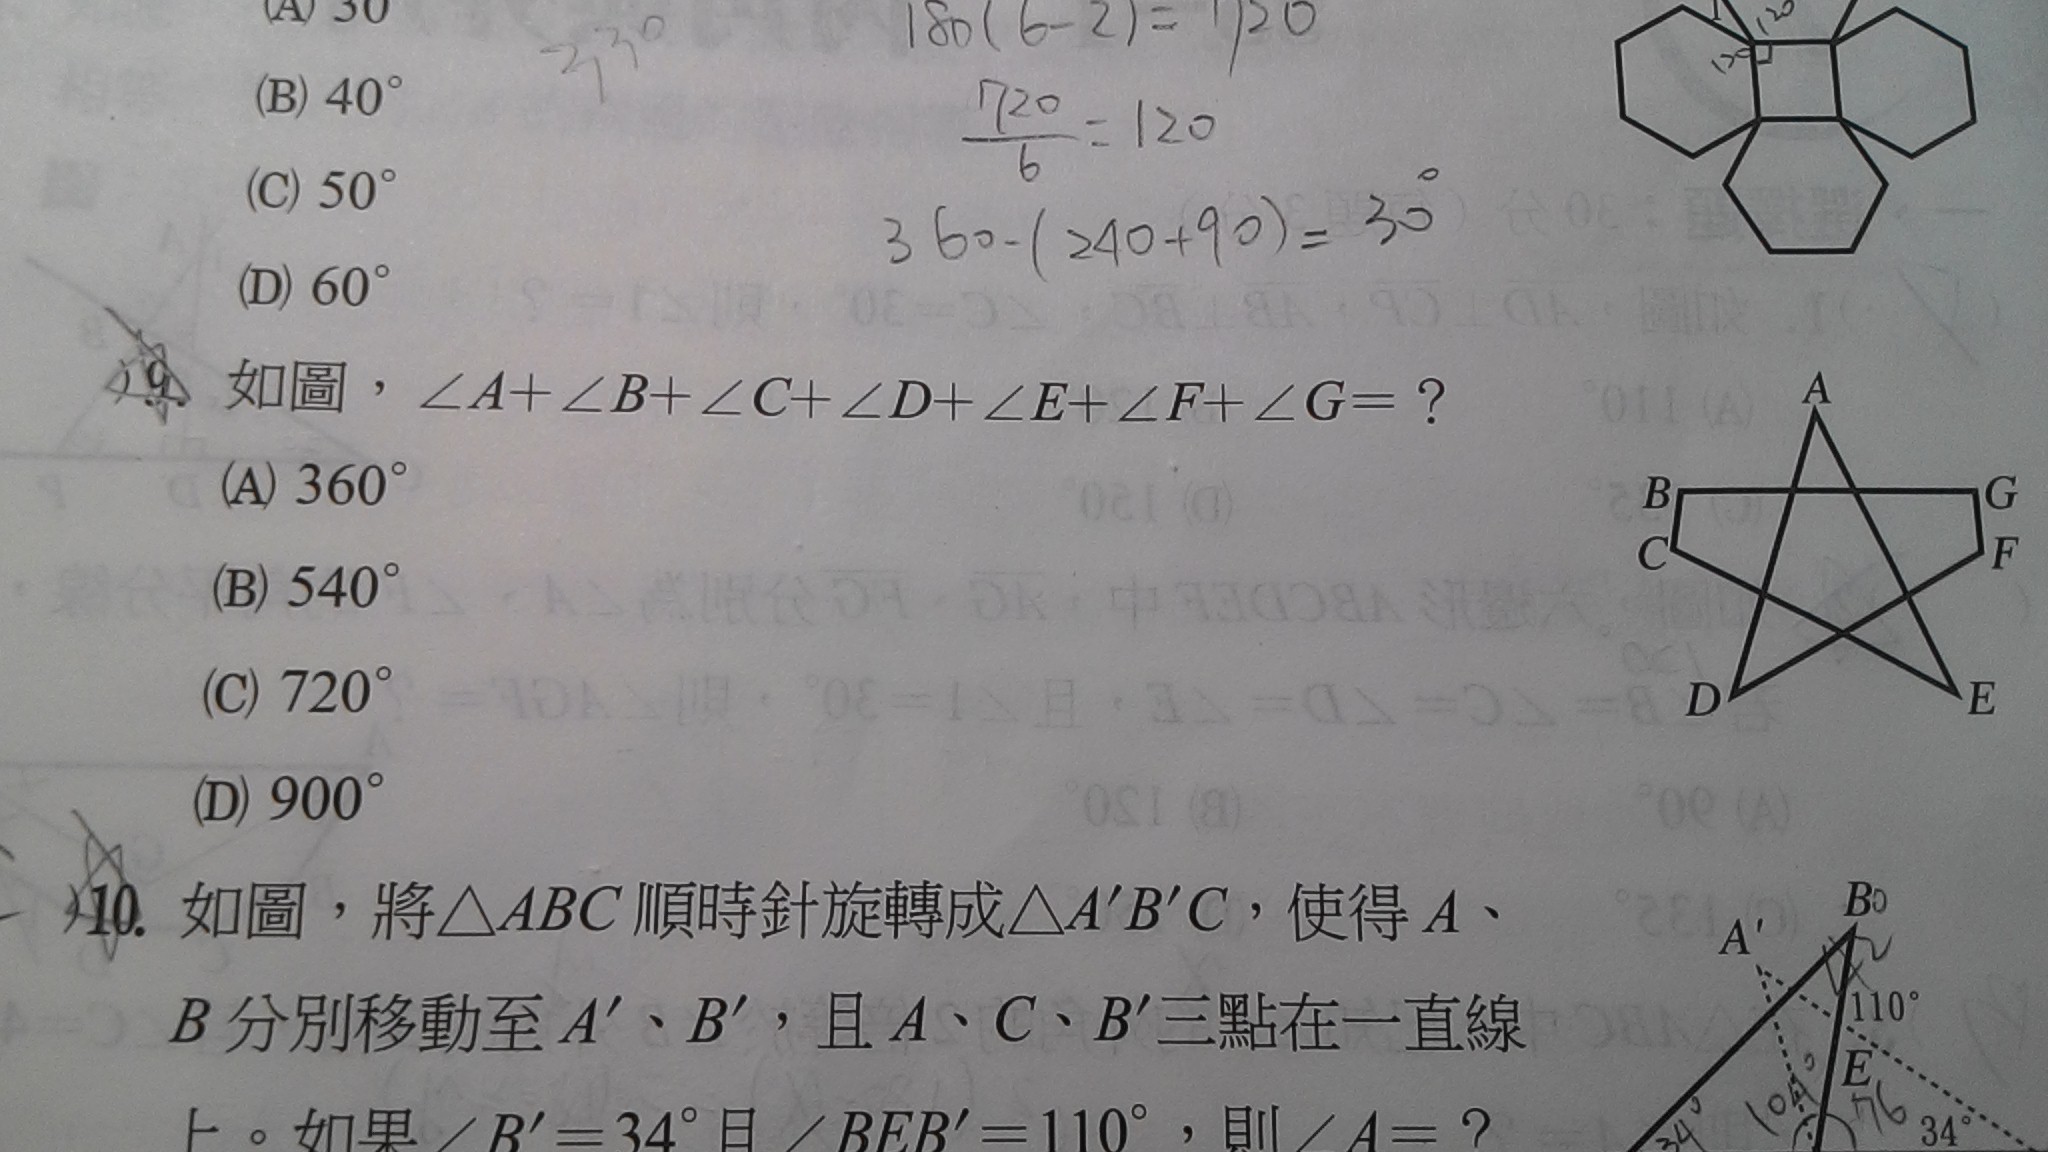 (A) 30
180(6-2)=720
(B) 40°
720/6=120
(C) 50°
360-(240+90)=30°
(D) 60°
120
9. 如圖，∠A+∠B+∠C+∠D+∠E+∠F+∠G=？
(A) 360°
(B) 540°
(C) 720°
(D) 900°
A
B
G
C
F
D
E
10. 如圖，將△ABC 順時針旋轉成△A′B′C，使得 A、
B 分別移動至 A′、B′，且 A、C、B′三點在一直線
上。如果∠B′=34°且∠BEB′=110°，則∠A=？
B
A′
110°
E
104°
76
34°
34°